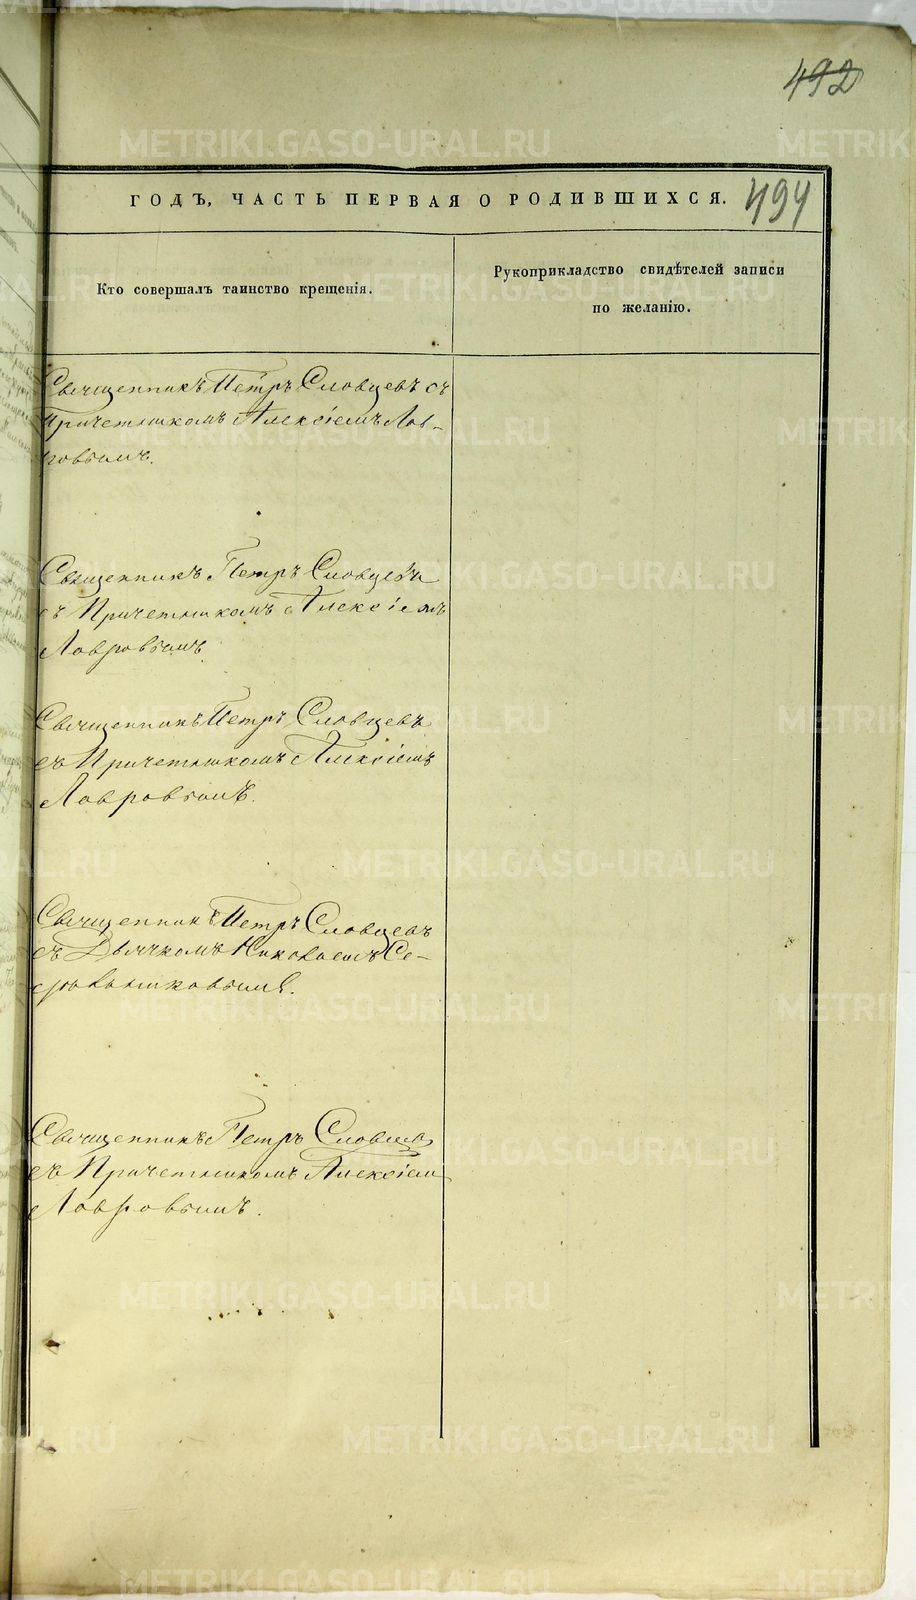 492
ГОДЪ, ЧАСТЬ ПЕРВАЯ О РОДИВШИХСЯ. 494
Кто совершалъ таинство крещенія.
Рукоприкладство свидѣтелей записи
по желанію.
Священникъ Петръ Словцевъ съ
Причетникомъ Алексіемъ Лав-
ровымъ.
Священникъ Петръ Словцевъ
съ Причетникомъ Алексіемъ
Лавровымъ
Священникъ Петръ Словцевъ
съ Причетникомъ Алексіемъ
Лавровымъ.
Священникъ Петръ Словцевъ
съ Дьячкомъ Николаемъ Се-
Священникъ Петръ Словцевъ
съ Причетникомъ Алексіемъ
Лавровымъ.
METRIKI.GASO-URAL.RU